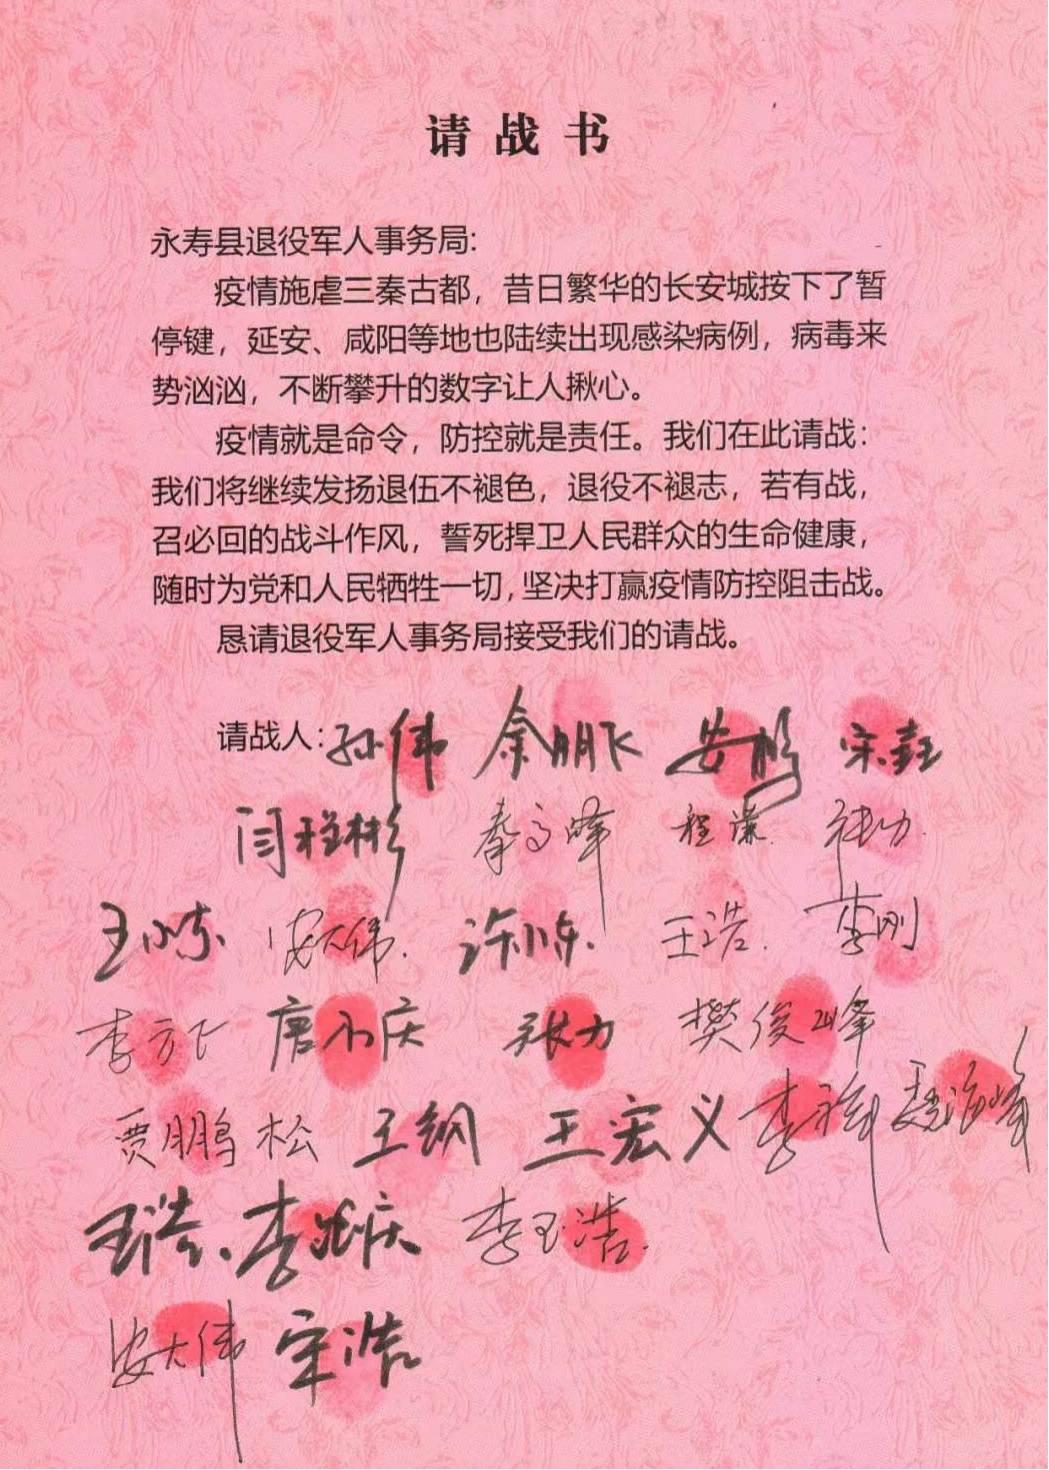 请战书
永寿县退役军人事务局:
疫情施虐三秦古都，昔日繁华的长安城按下了暂
停键，延安、咸阳等地也陆续出现感染病例，病毒来
势汹汹，不断攀升的数字让人揪心。
疫情就是命令，防控就是责任。我们在此请战：
我们将继续发扬退伍不褪色，退役不褪志，若有战，
召必回的战斗作风，誓死捍卫人民群众的生命健康，
随时为党和人民牺牲一切，坚决打赢疫情防控阻击战。
恳请退役军人事务局接受我们的请战。
请战人：孙伟 余鹏飞 安鹏
闫程彬 秦高峰 程谦
王小东 安大伟 许小东 王浩 李刚
李方飞 唐小庆 张力 樊俊峰
贾鹏松 王钢 王宏义 李祥 魏海峰
王浩 李 庆 李玉浩
安大伟 宋浩